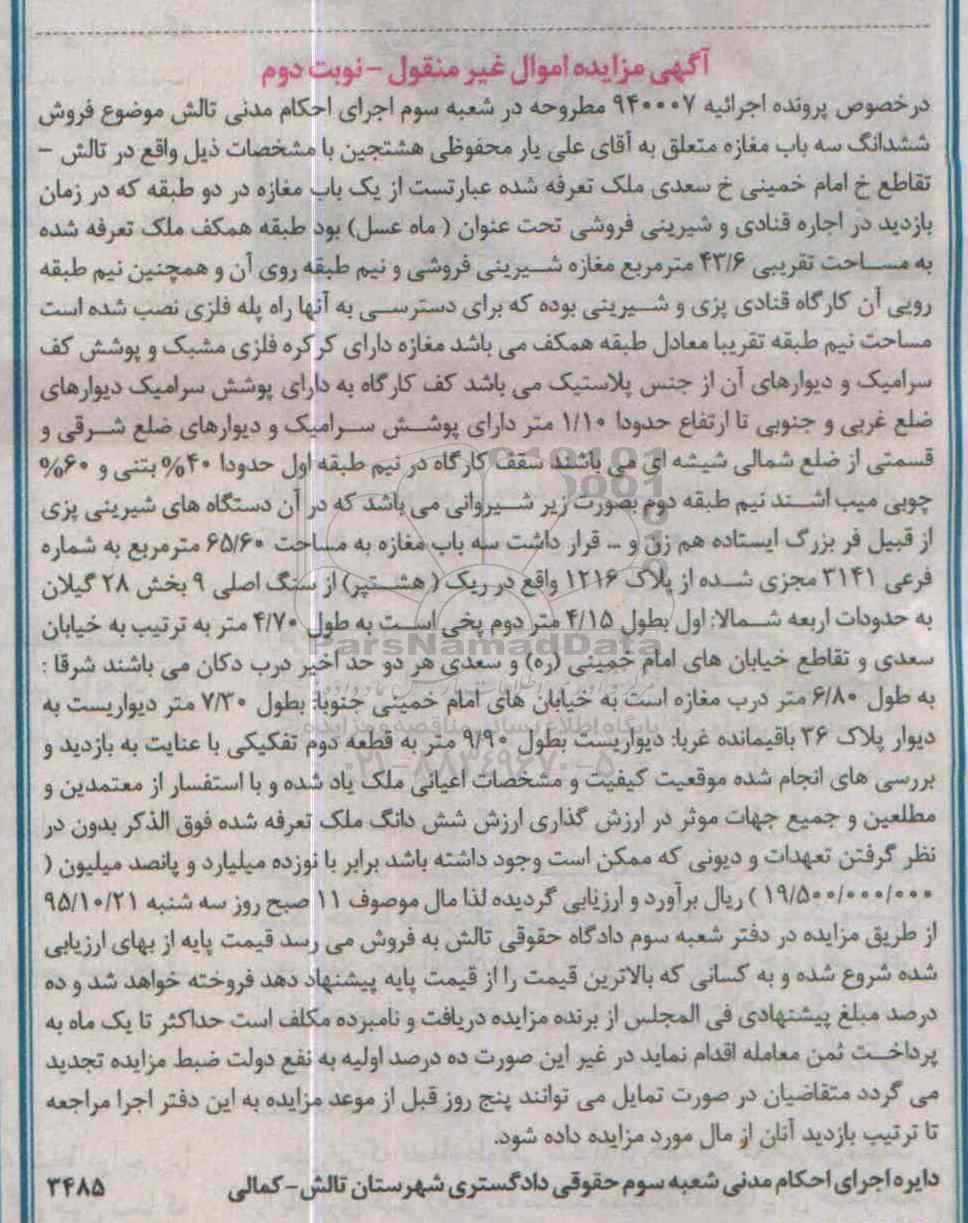 آگهی مزایده اموال غیر منقول - نوبت دوم
درخصوص پرونده اجرائیه ۹۴۰۰۰۷ مطروحه در شعبه سوم اجرای احکام مدنی تالش موضوع فروش
ششدانگ سه باب مغازه متعلق به آقای علی یار محفوظی هشتجین با مشخصات ذیل واقع در تالش -
تقاطع خ امام خمینی خ سعدی ملک تعرفه شده عبارتست از یک باب مغازه در دو طبقه که در زمان
بازدید در اجاره قنادی و شیرینی فروشی تحت عنوان ( ماه عسل) بود طبقه همکف ملک تعرفه شده
به مساحت تقریبی ۴۳/۶ مترمربع مغازه شیرینی فروشی و نیم طبقه روی آن و همچنین نیم طبقه
رویی آن کارگاه قنادی پزی و شیرینی بوده که برای دسترسی به آنها راه پله فلزی نصب شده است
مساحت نیم طبقه تقریبا معادل طبقه همکف می باشد مغازه دارای کرکره فلزی مشبک و پوشش کف
سرامیک و دیوارهای آن از جنس پلاستیک می باشد کف کارگاه به دارای پوشش سرامیک دیوارهای
ضلع غربی و جنوبی تا ارتفاع حدودا ۱/۱۰ متر دارای پوشش سرامیک و دیوارهای ضلع شرقی و
قسمتی از ضلع شمالی شیشه ای می باشند سقف کارگاه در نیم طبقه اول حدودا ۴۰% بتنی و ۶۰%
چوبی میب اشند نیم طبقه دوم بصورت زیر شیروانی می باشد که در آن دستگاه های شیرینی پزی
از قبیل فر بزرگ ایستاده هم زن و ... قرار داشت سه باب مغازه به مساحت ۶۵/۶۰ مترمربع به شماره
فرعی ۳۱۴۱ مجزی شده از پلاک ۱۲۱۶ واقع در ریک ( هشتپر) از سنگ اصلی ۹ بخش ۲۸ گیلان
به حدودات اربعه شمالا: اول بطول ۴/۱۵ متر دوم پخی است به طول ۴/۷۰ متر به ترتیب به خیابان
سعدی و تقاطع خیابان های امام خمینی (ره) و سعدی هر دو حد اخیر درب دکان می باشند شرقا :
به طول ۶/۸۰ متر درب مغازه است به خیابان های امام خمینی جنوبا: بطول ۷/۳۰ متر دیواریست به
دیوار پلاک ۳۶ باقیمانده غربا: دیواریست بطول ۹/۹۰ متر به قطعه دوم تفکیکی با عنایت به بازدید و
بررسی های انجام شده موقعیت کیفیت و مشخصات اعیانی ملک یاد شده و با استفسار از معتمدین و
مطلعین و جمیع جهات موثر در ارزش گذاری ارزش شش دانگ ملک تعرفه شده فوق الذکر بدون در
نظر گرفتن تعهدات و دیونی که ممکن است وجود داشته باشد برابر با نوزده میلیارد و پانصد میلیون (
۱۹/۵۰۰/۰۰۰/۰۰۰ ) ریال برآورد و ارزیابی گردیده لذا مال موصوف ۱۱ صبح روز سه شنبه ۹۵/۱۰/۲۱
از طریق مزایده در دفتر شعبه سوم دادگاه حقوقی تالش به فروش می رسد قیمت پایه از بهای ارزیابی
شده شروع شده و به کسانی که بالاترین قیمت را از قیمت پایه پیشنهاد دهد فروخته خواهد شد و ده
درصد مبلغ پیشنهادی فی المجلس از برنده مزایده دریافت و نامبرده مکلف است حداکثر تا یک ماه به
پرداخت ثمن معامله اقدام نماید در غیر این صورت ده درصد اولیه به نفع دولت ضبط مزایده تجدید
می گردد متقاضیان در صورت تمایل می توانند پنج روز قبل از موعد مزایده به این دفتر اجرا مراجعه
تا ترتیب بازدید آنان از مال مورد مزایده داده شود.
دایره اجرای احکام مدنی شعبه سوم حقوقی دادگستری شهرستان تالش - کمالی ۳۴۸۵
ParsNamadData
پایگاه اطلاع رسانی مناقصه و مزایده
۰۲۱-۸۸۳۴۹۶۷۰-۵